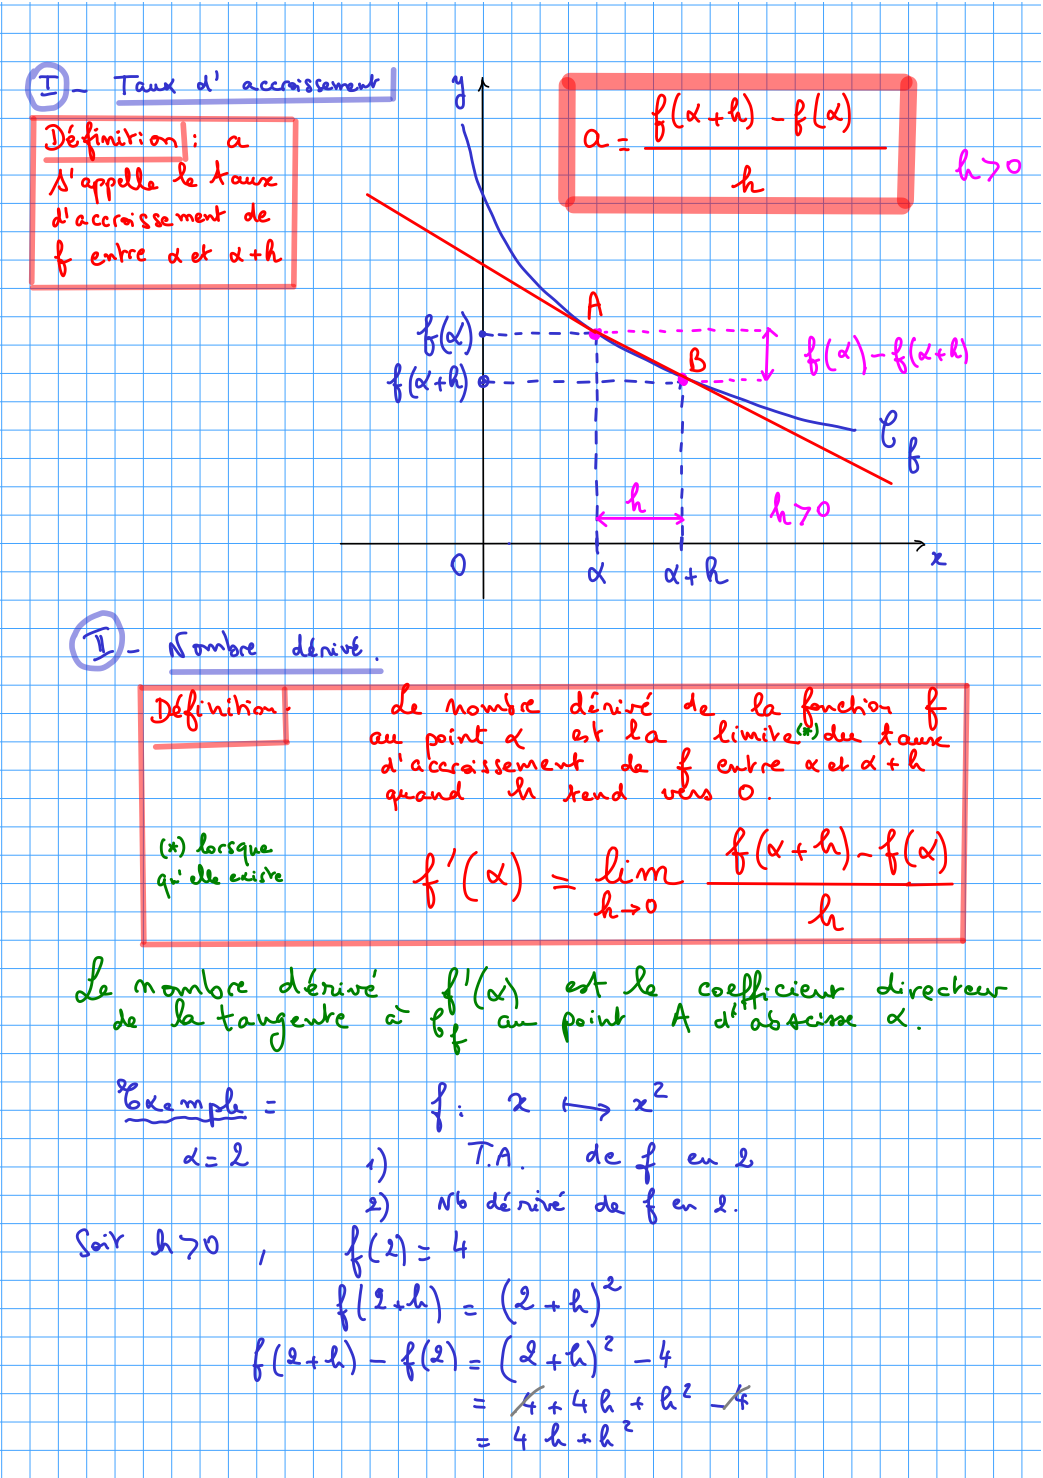 I - Taux d'accroissement
Définition : a
s'appelle le taux
d'accroissement de
f entre α et α+h
y
a = (f(α+h) - f(α)) / h
h>0
A
f(α)
B
f(α)-f(α+h)
f(α+h)
C_f
h
h>0
0
α
α+h
x
II - Nombre dérivé.
Définition: Le nombre dérivé de la fonction f
au point α est la limite(*) du taux
d'accroissement de f entre α et α+h
quand h tend vers 0.
(*) lorsque
qu'elle existe
f'(α) = lim h→0 (f(α+h)-f(α)) / h
Le nombre dérivé f'(α) est le coefficient directeur
de la tangente à C_f au point A d'abscisse α.
Exemple = f: x ↦ x²
α=2 1) T.A. de f en 2
2) Nb dérivé de f en 2.
Soit h>0, f(2)=4
f(2+h) = (2+h)²
f(2+h) - f(2) = (2+h)² - 4
= 4+4h+h² -4
= 4h+h²